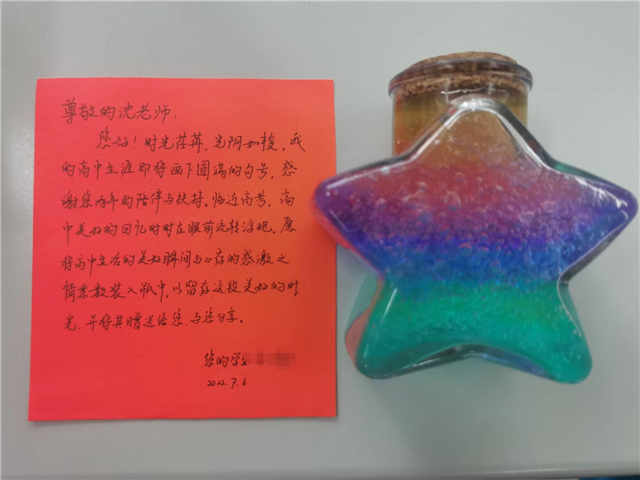 尊敬的沈老师：
您好！时光荏苒，光阴如梭，我
的高中生涯即将画下圆满的句号，感
谢您两年的陪伴与扶持。临近高考，高
中美好的回忆时时在眼前流转浮现。愿
将高中生活的美好瞬间与心存的感激之
情悉数装入瓶中，以留存这段美好的时
光，并将其赠送给您，与您分享。
您的学生
2022.7.6